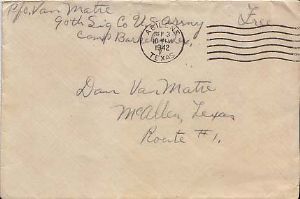 Pfc. Van Matre
90th Sig Co U.S. Army
Camp Barkeley,
Free
ABILENE
SEP 3
1942
TEXAS
Dan Van Matre
McAllen, Texas
Route #1.